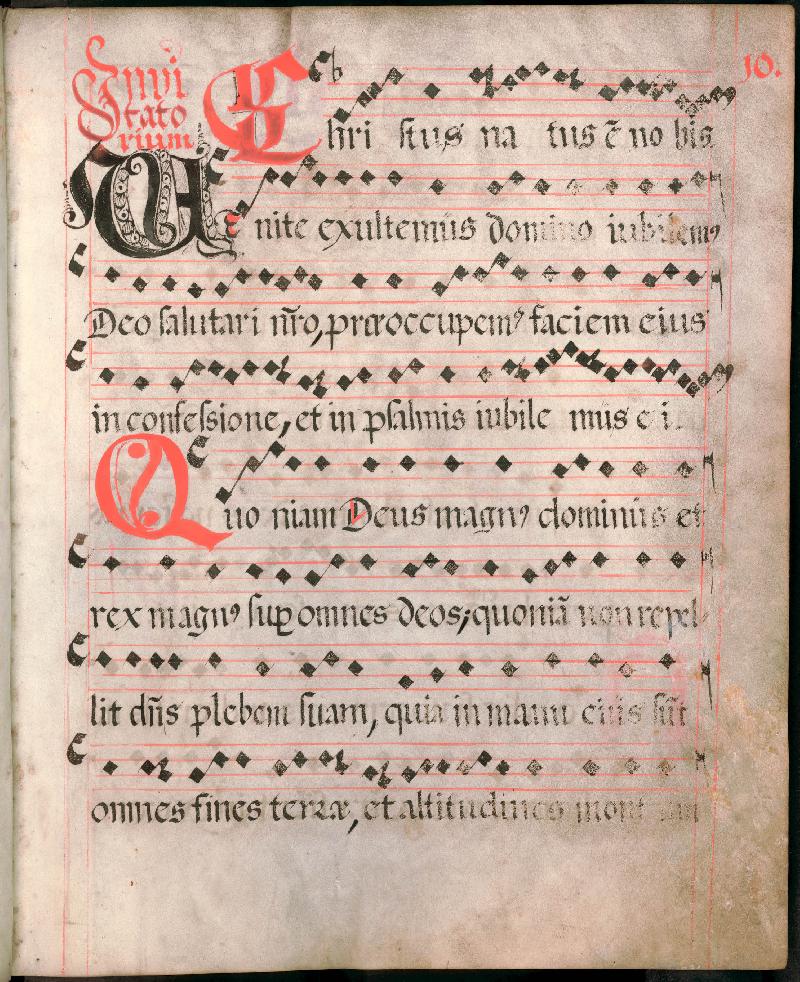 10.
Invi
tato
rium
Chri stus na tus ē no bis
Venite exultemus domino iubilemꝰ
Deo salutari nr̄o, præoccupemꝰ faciem eius
in confessione, et in psalmis iubile mus e i
Quo niam Deus magnꝰ dominus et
rex magnꝰ suꝑ omnes deos; quoniā non repel-
lit dn̄s plebem suam, quia in manu eius sūt
omnes fines terræ, et altitudines mont